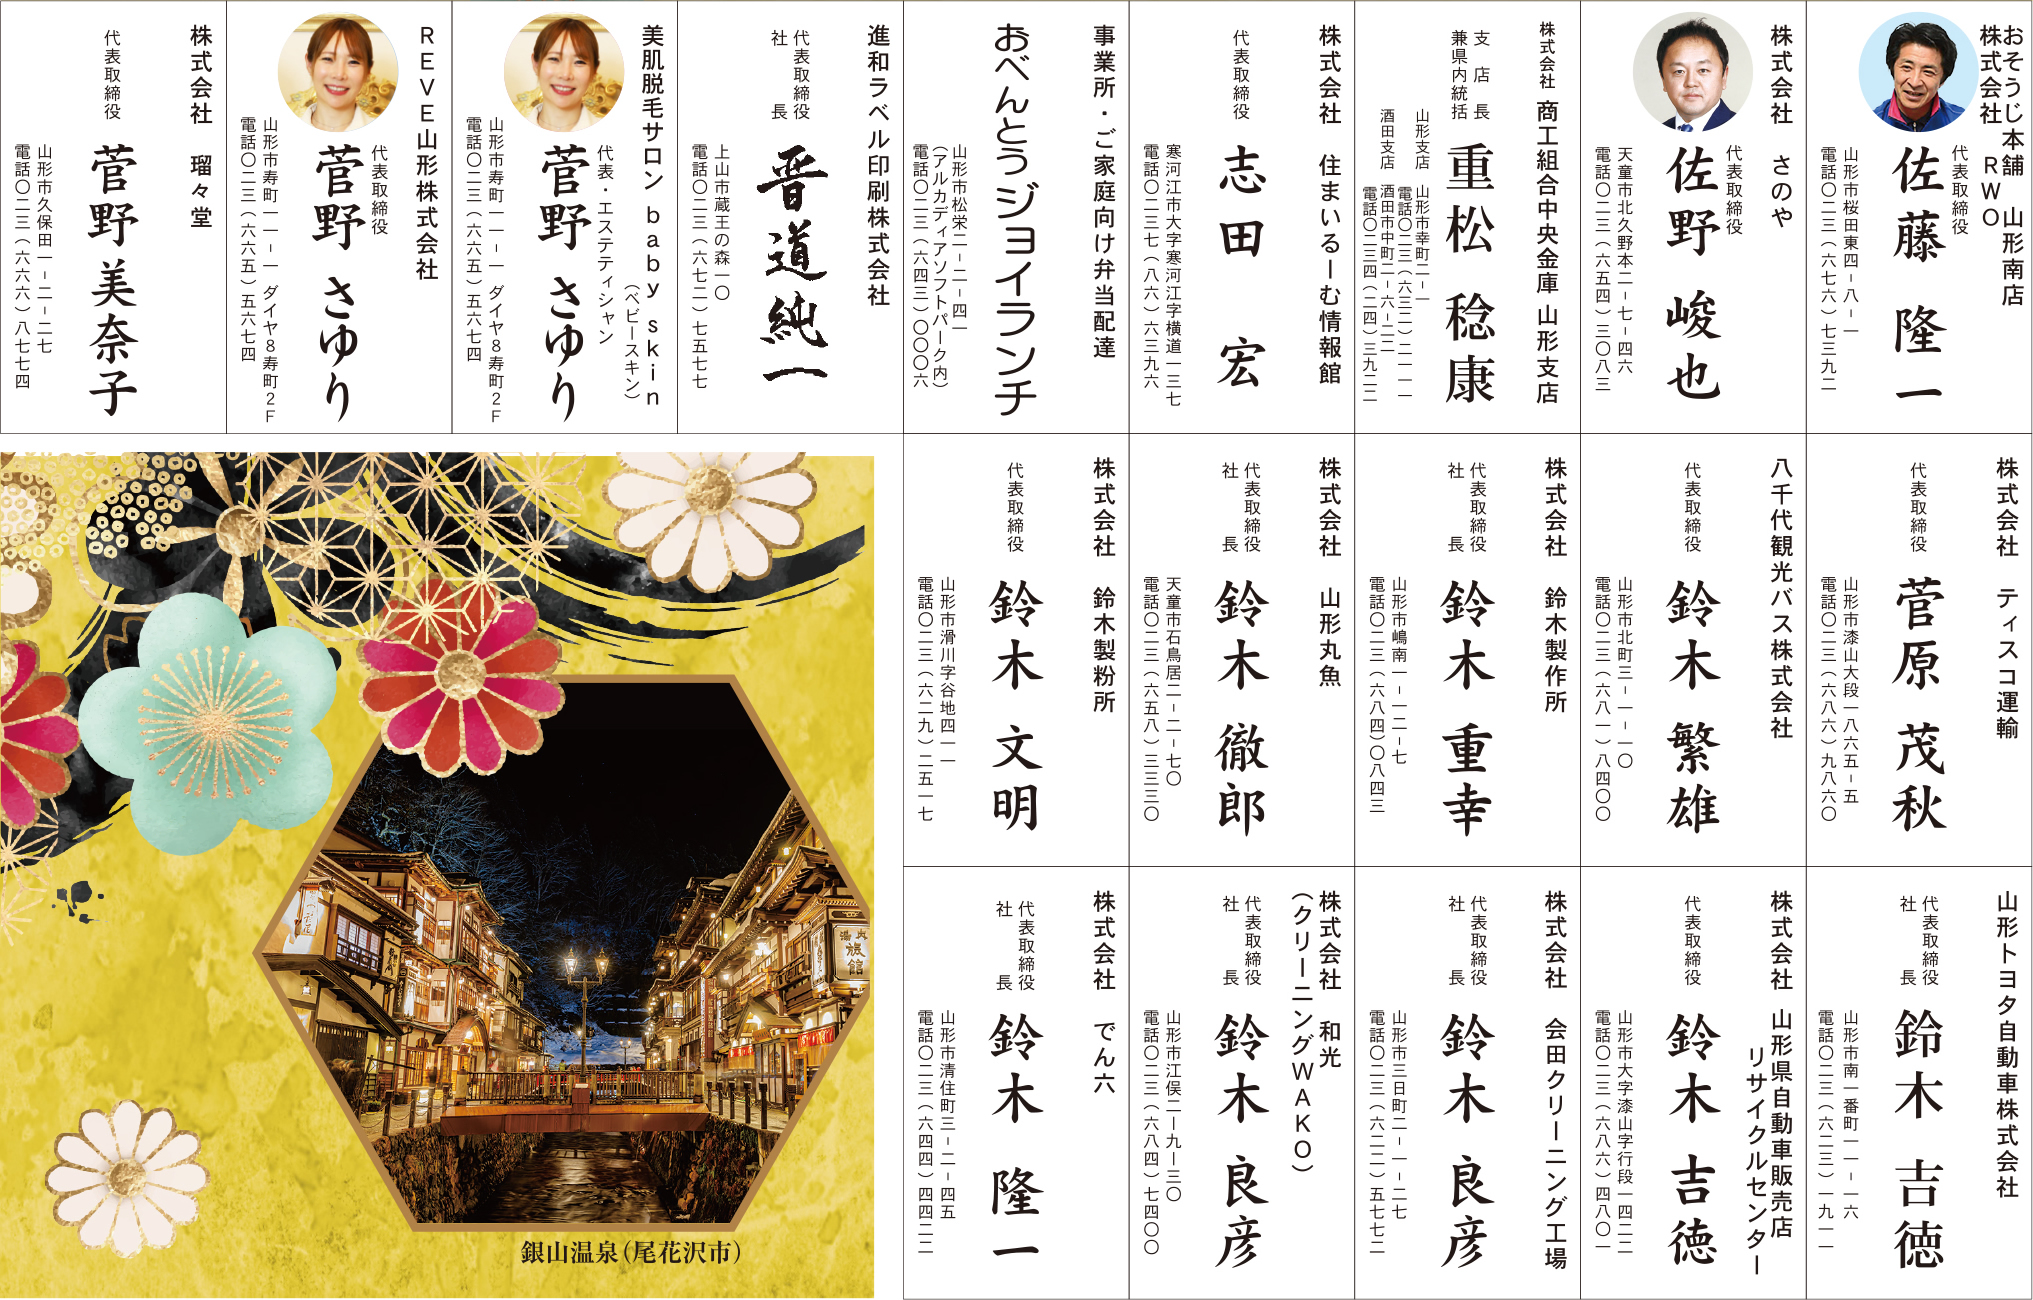 おそうじ本舗　山形南店
株式会社　ＲＷＯ
代表取締役
佐藤　隆一
山形市桜田東四−八−一
電話〇二三（六七六）七三九二
株式会社　さのや
代表取締役
佐野　峻也
天童市北久野本二−七−四六
電話〇二三（六五四）三〇八三
株式会社　商工組合中央金庫　山形支店
支店長
兼県内統括
重松　稔康
山形支店　山形市幸町二−一
電話〇二三（六三二）二一一一
酒田支店　酒田市中町二−六−二二
電話〇二三四（二四）三九二二
株式会社　住まいるーむ情報館
代表取締役
志田　宏
寒河江市大字寒河江字横道一三七
電話〇二三七（八六）六三九六
事業所・ご家庭向け弁当配達
おべんとうジョイランチ
山形市松栄二−二−四一
（アルカディアソフトパーク内）
電話〇二三（六四三）〇〇〇六
進和ラベル印刷株式会社
代表取締役
社長
晋道純一
上山市蔵王の森一〇
電話〇二三（六七二）七五七七
美肌脱毛サロン　ｂａｂｙ　ｓｋｉｎ
（ベビースキン）
代表・エステティシャン
菅野　さゆり
山形市寿町一一−一　ダイヤ８寿町２Ｆ
電話〇二三（六六五）五六七四
ＲＥＶＥ山形株式会社
代表取締役
菅野　さゆり
山形市寿町一一−一　ダイヤ８寿町２Ｆ
電話〇二三（六六五）五六七四
株式会社　瑠々堂
代表取締役
菅野　美奈子
山形市久保田一−二−二七
電話〇二三（六六六）八七七四
株式会社　ティスコ運輸
代表取締役
菅原　茂秋
山形市漆山大段一八六五−五
電話〇二三（六八六）九八六〇
八千代観光バス株式会社
代表取締役
鈴木　繁雄
山形市北町三−一−一〇
電話〇二三（六八一）八四〇〇
株式会社　鈴木製作所
代表取締役
社長
鈴木　重幸
山形市嶋南一−一二−七
電話〇二三（六八四）〇八四三
株式会社　山形丸魚
代表取締役
社長
鈴木　徹郎
天童市石鳥居二−二−七〇
電話〇二三（六五八）三三三〇
株式会社　鈴木製粉所
代表取締役
鈴木　文明
山形市滑川字谷地四一一
電話〇二三（六二九）二五一七
山形トヨタ自動車株式会社
代表取締役
社長
鈴木　吉徳
山形市南一番町一一−一六
電話〇二三（六二三）一九一一
株式会社　山形県自動車販売店
リサイクルセンター
代表取締役
鈴木　吉徳
山形市大字漆山字行段一四二二
電話〇二三（六八六）四八〇一
株式会社　会田クリーニング工場
代表取締役
社長
鈴木　良彦
山形市三日町二−一−二七
電話〇二三（六二二）五七七二
株式会社　和光
（クリーニングＷＡＫＯ）
代表取締役
社長
鈴木　良彦
山形市江俣二ー九ー三〇
電話〇二三（六八四）七四〇〇
株式会社　でん六
代表取締役
社長
鈴木　隆一
山形市清住町三−二−四五
電話〇二三（六四四）四四二二
旅館
銀山温泉（尾花沢市）